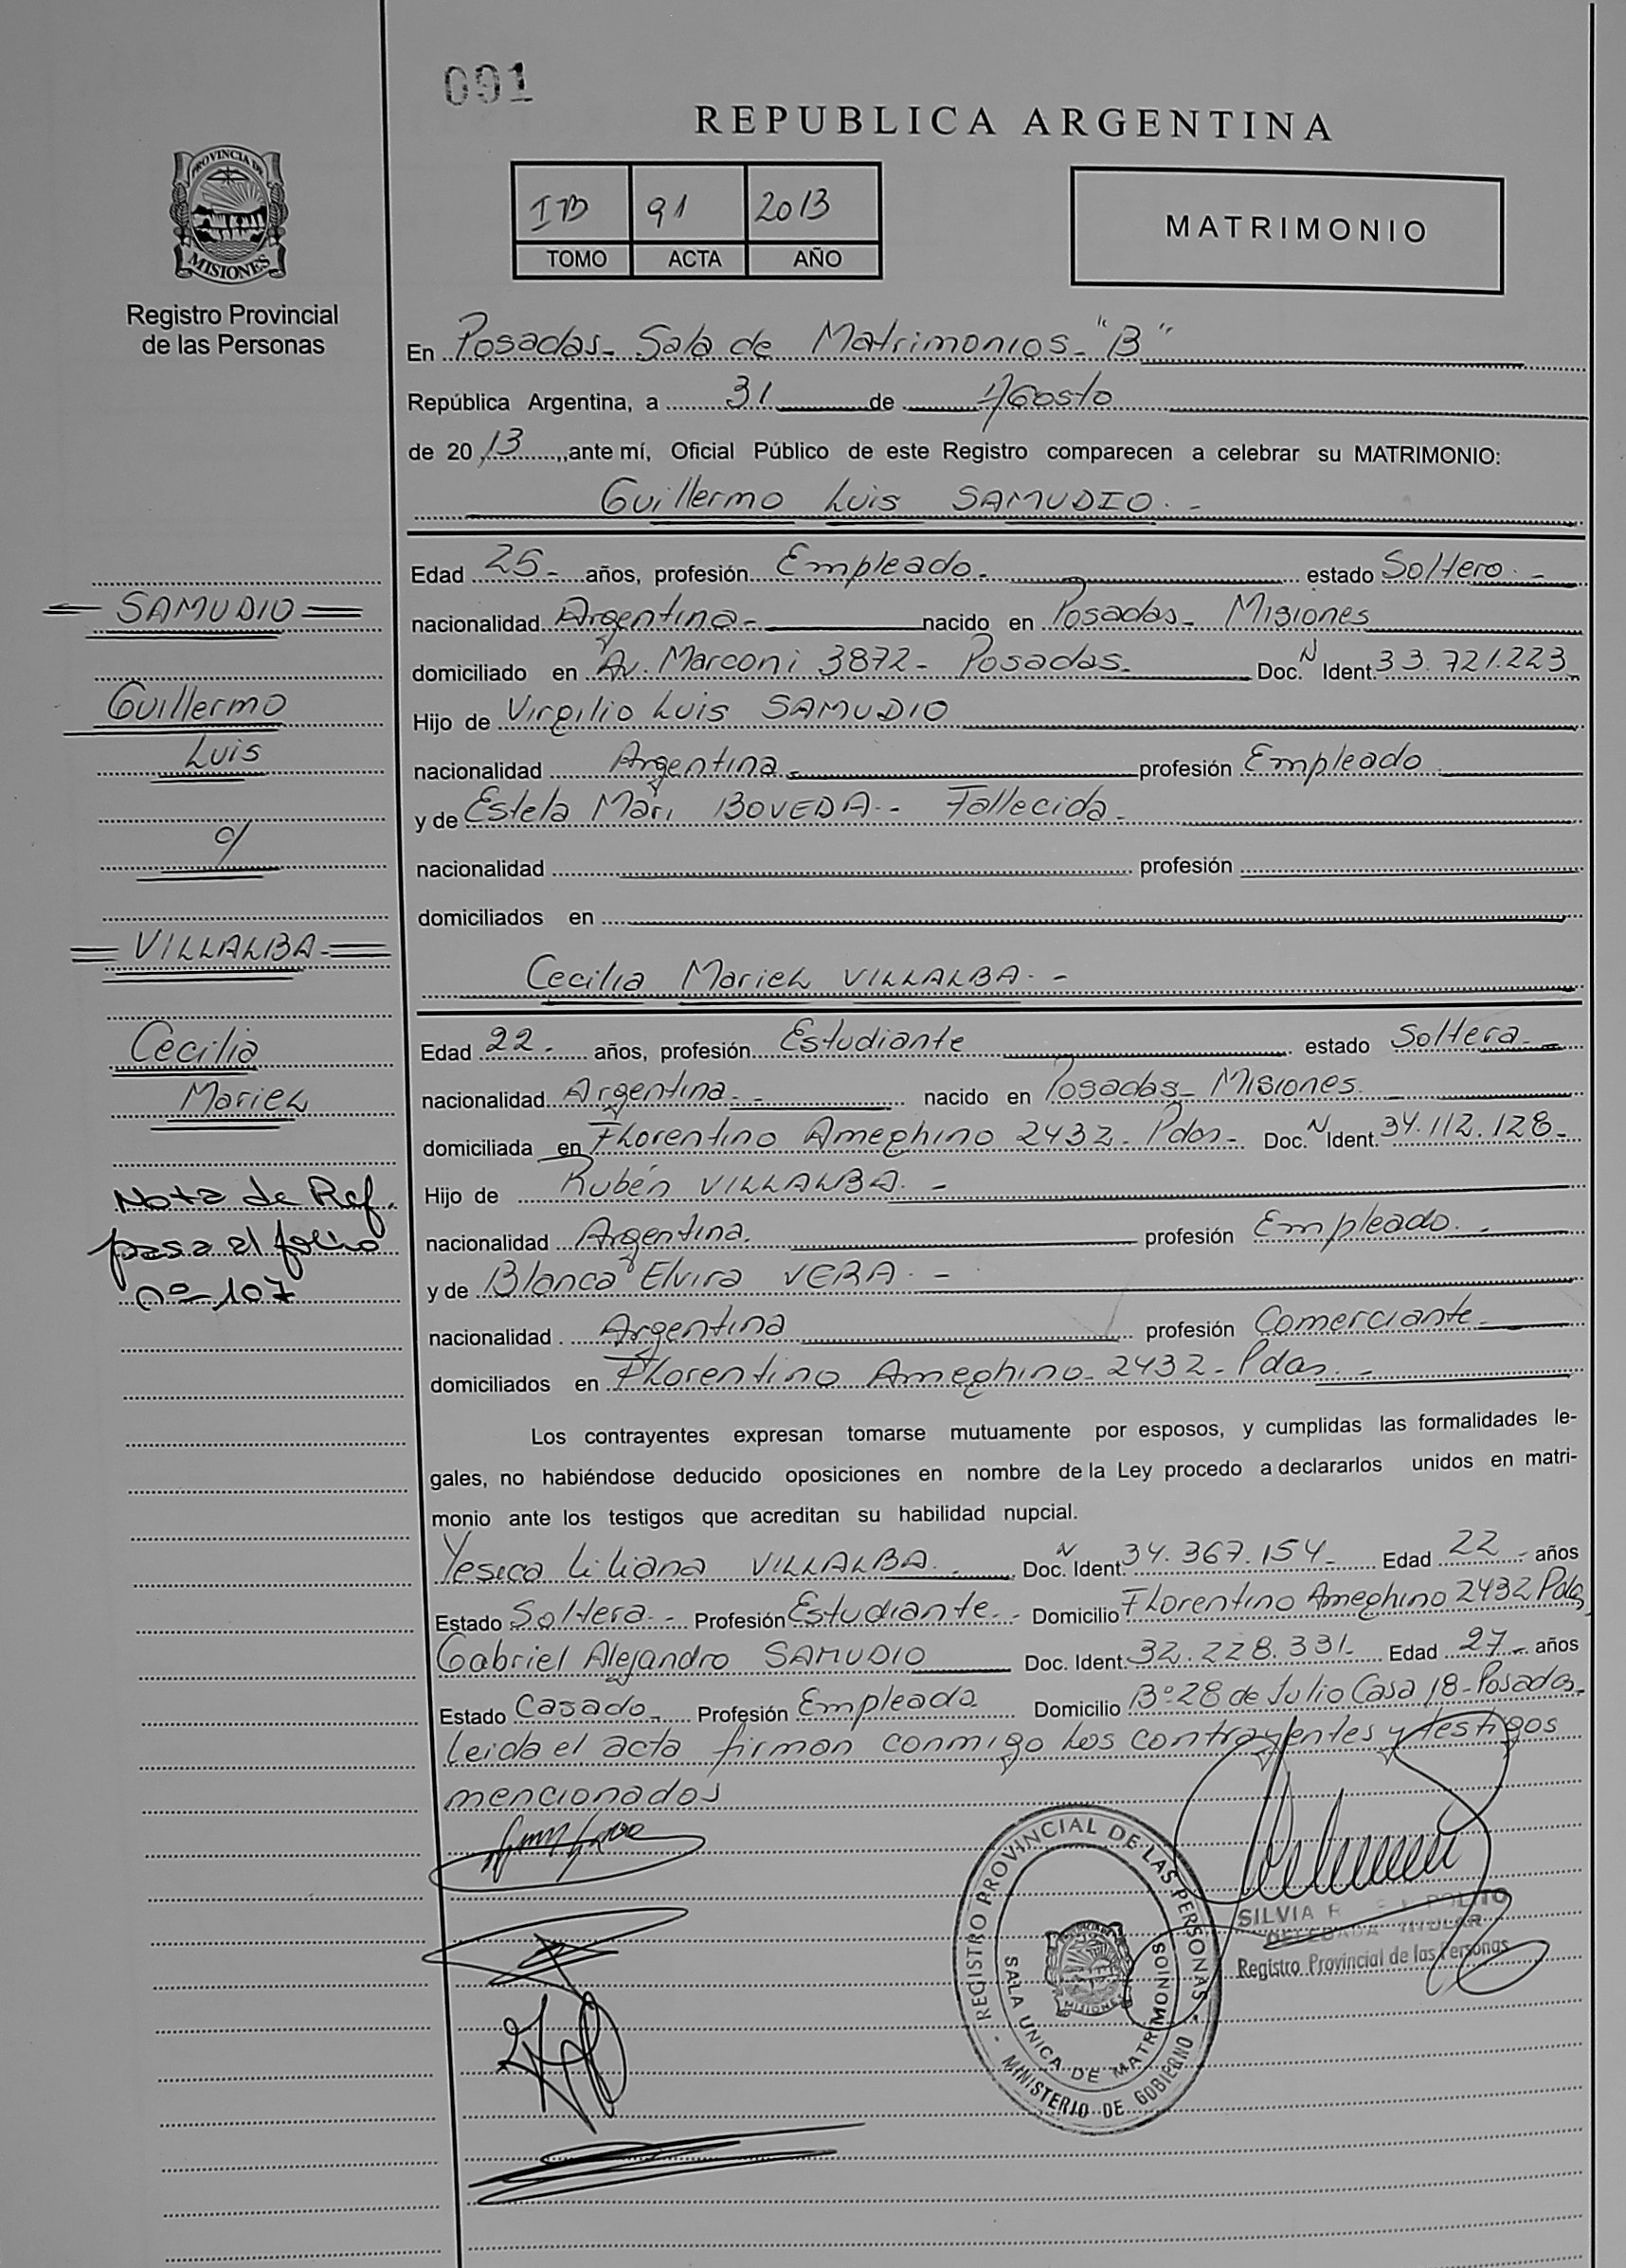 091
REPUBLICA ARGENTINA
PROVINCIA DE
MISIONES
Registro Provincial
de las Personas
IB 91 2013
TOMO ACTA AÑO
MATRIMONIO
En Posadas - Sala de Matrimonios - "B"
República Argentina, a 31 de Agosto
de 20 13 ,, ante mí, Oficial Público de este Registro comparecen a celebrar su MATRIMONIO:
Guillermo Luis SAMUDIO. -
Edad 25 - años, profesión Empleado - estado Soltero. -
nacionalidad Argentina - nacido en Posadas - Misiones
domiciliado en Av. Marconi 3872 - Posadas - Doc. N Ident. 33.721.223
Hijo de Virgilio Luis SAMUDIO
nacionalidad Argentina - profesión Empleado
y de Estela Mari BOVEDA. - Fallecida. -
nacionalidad profesión
domiciliados en
Cecilia Mariel VILLALBA. -
Edad 22 - años, profesión Estudiante estado Soltera -
nacionalidad Argentina. - nacido en Posadas - Misiones.
domiciliada en Florentino Ameghino 2432 - Pdas - Doc. N Ident. 34.112.128 -
Hijo de Rubén VILLALBA. -
nacionalidad Argentina. profesión Empleado. -
y de Blanca Elvira VERA. -
nacionalidad Argentina profesión Comerciante -
domiciliados en Florentino Ameghino - 2432 - Pdas. -
Los contrayentes expresan tomarse mutuamente por esposos, y cumplidas las formalidades le-
gales, no habiéndose deducido oposiciones en nombre de la Ley procedo a declararlos unidos en matri-
monio ante los testigos que acreditan su habilidad nupcial.
Yesica Liliana VILLALBA. Doc. N Ident. 34.367.154 - Edad 22 - años
Estado Soltera. - Profesión Estudiante. - Domicilio Florentino Ameghino 2432 Pdas
Gabriel Alejandro SAMUDIO Doc. Ident. 32.228.331 - Edad 27 - años
Estado Casado - Profesión Empleado Domicilio Bº 28 de Julio Casa 18 - Posadas -
Leida el acta firman conmigo los contrayentes y testigos
mencionados
SAMUDIO
Guillermo
Luis
c/
VILLALBA -
Cecilia
Mariel
Nota de Ref.
pasa al folio
nº 107
- REGISTRO PROVINCIAL DE LAS PERSONAS -
MINISTERIO DE GOBIERNO
SALA UNICA DE MATRIMONIOS
MISIONES
SILVIA
TITULAR
Registro Provincial de las Personas